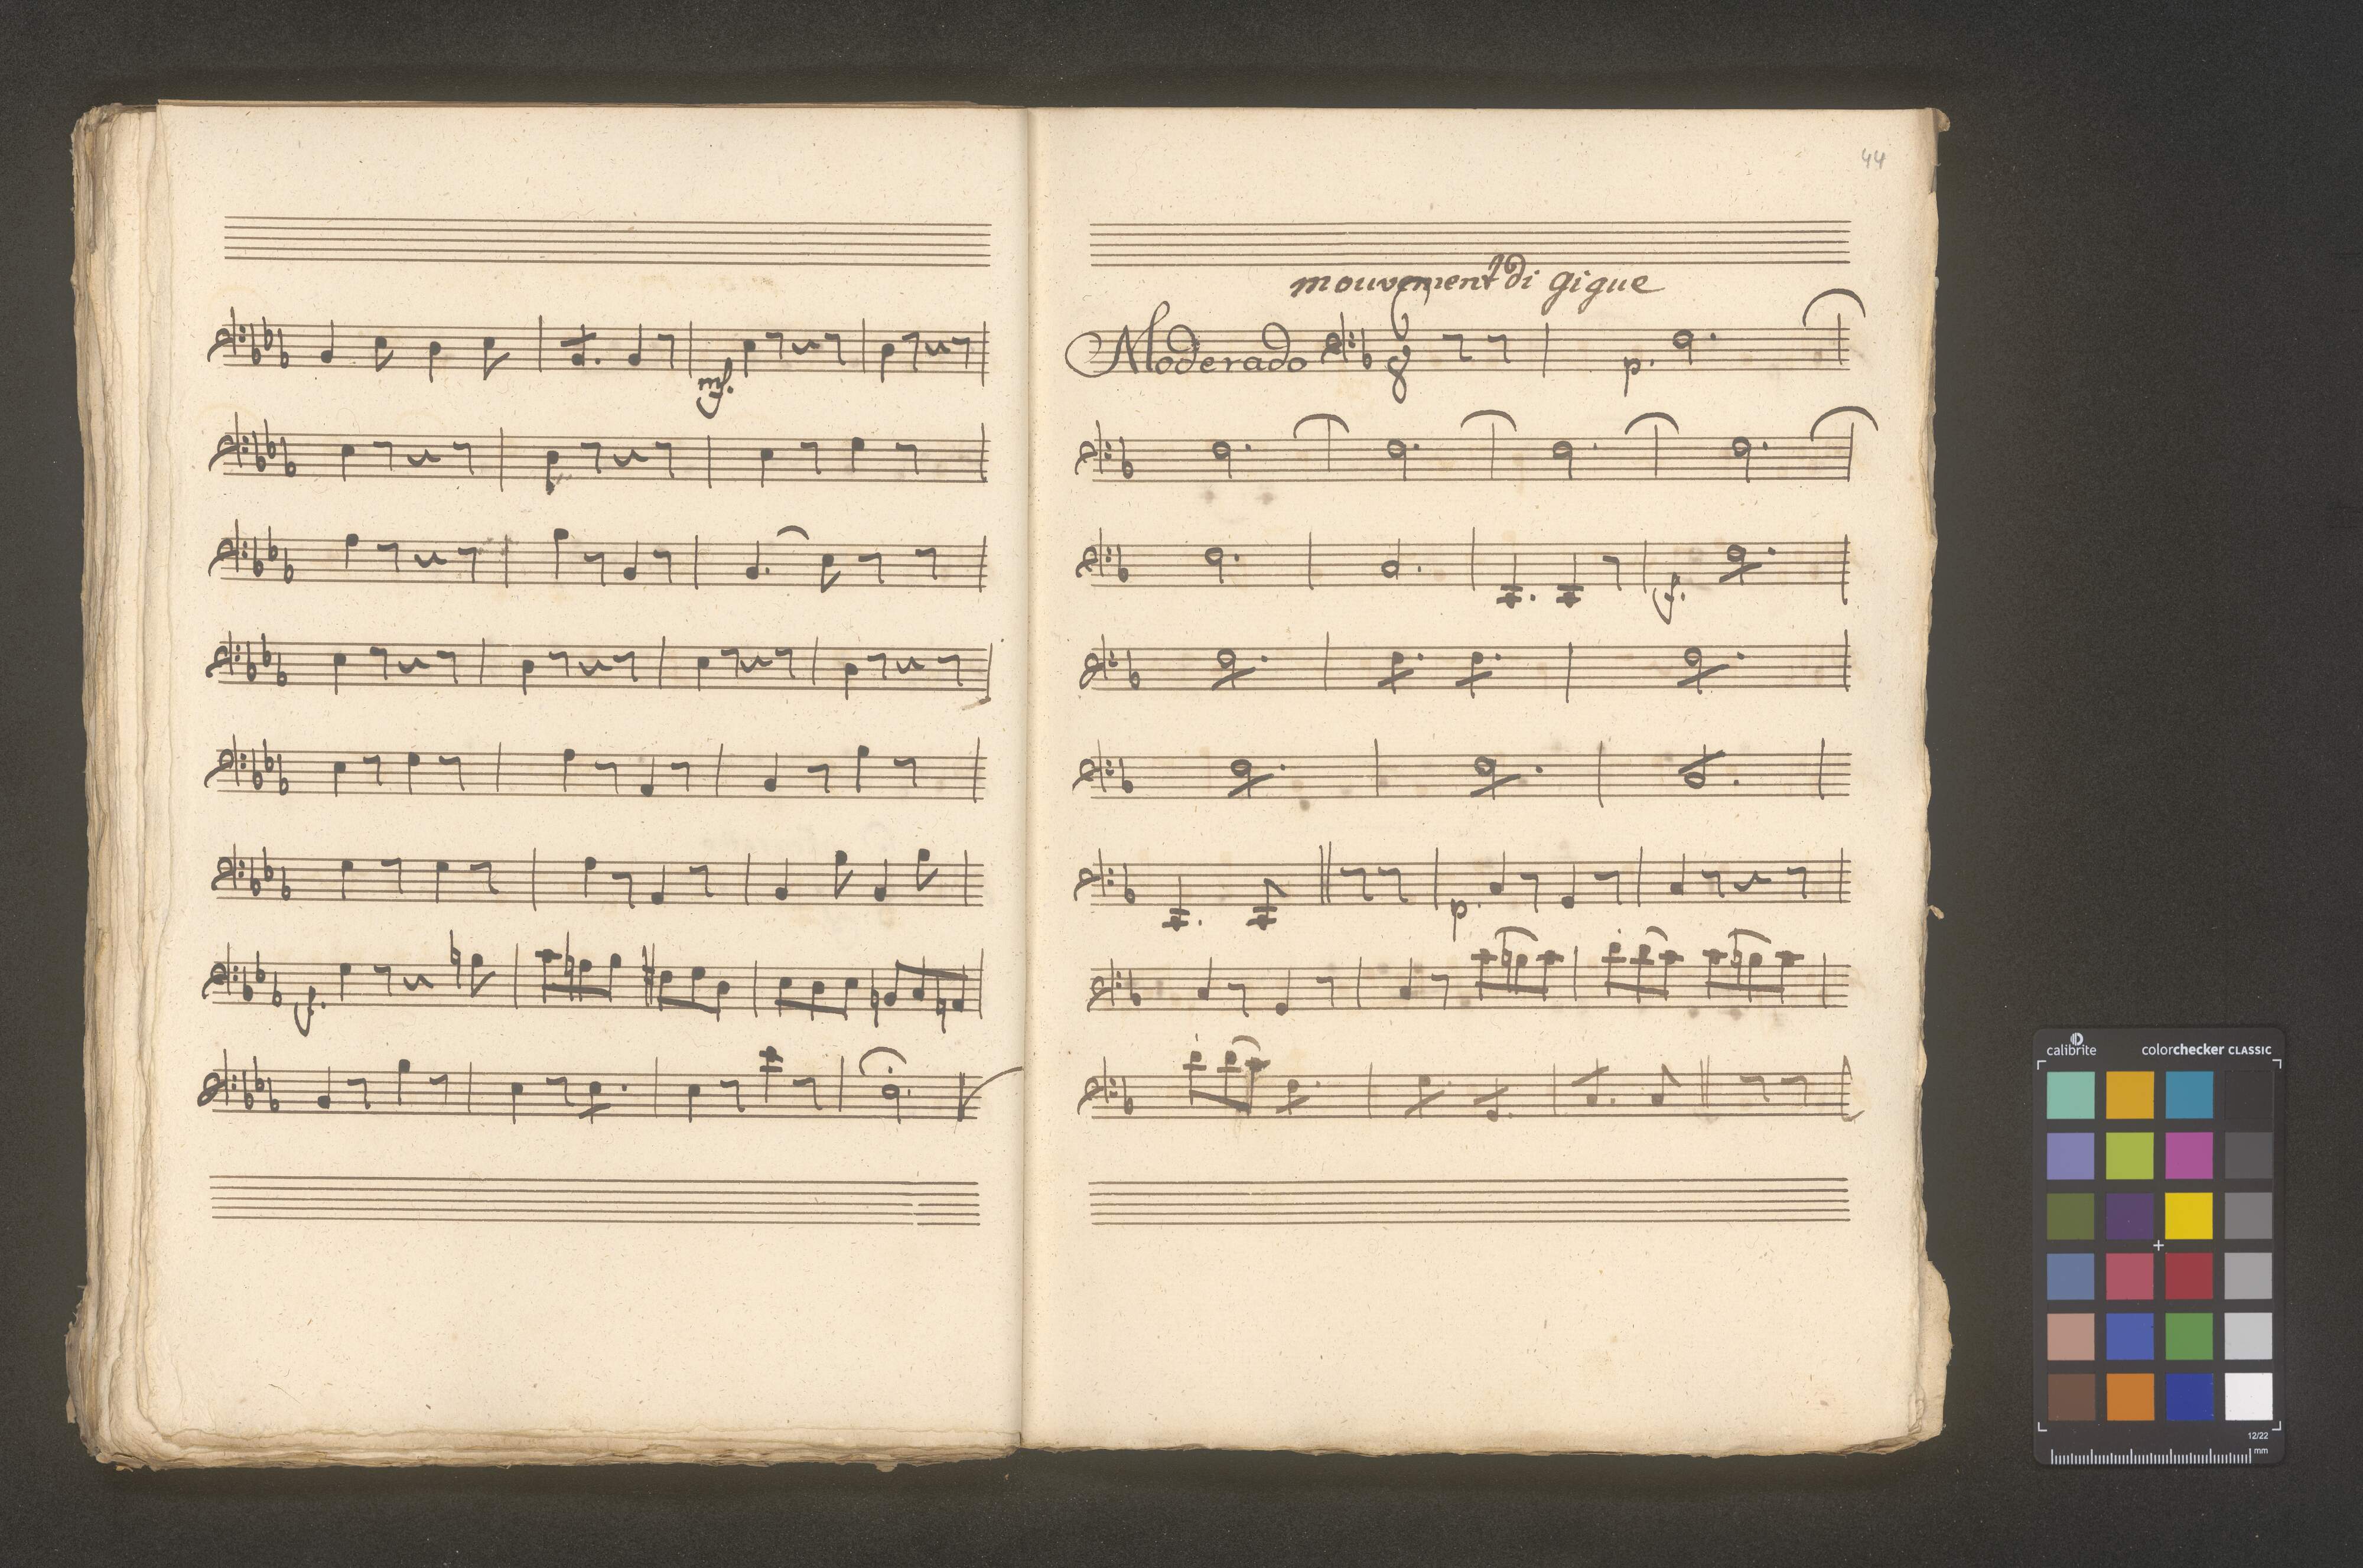 44
mouvement.to di gigue
Moderado 6
8
p.
mf.
f.
p.
f.
calibrite colorchecker CLASSIC
12/22
mm